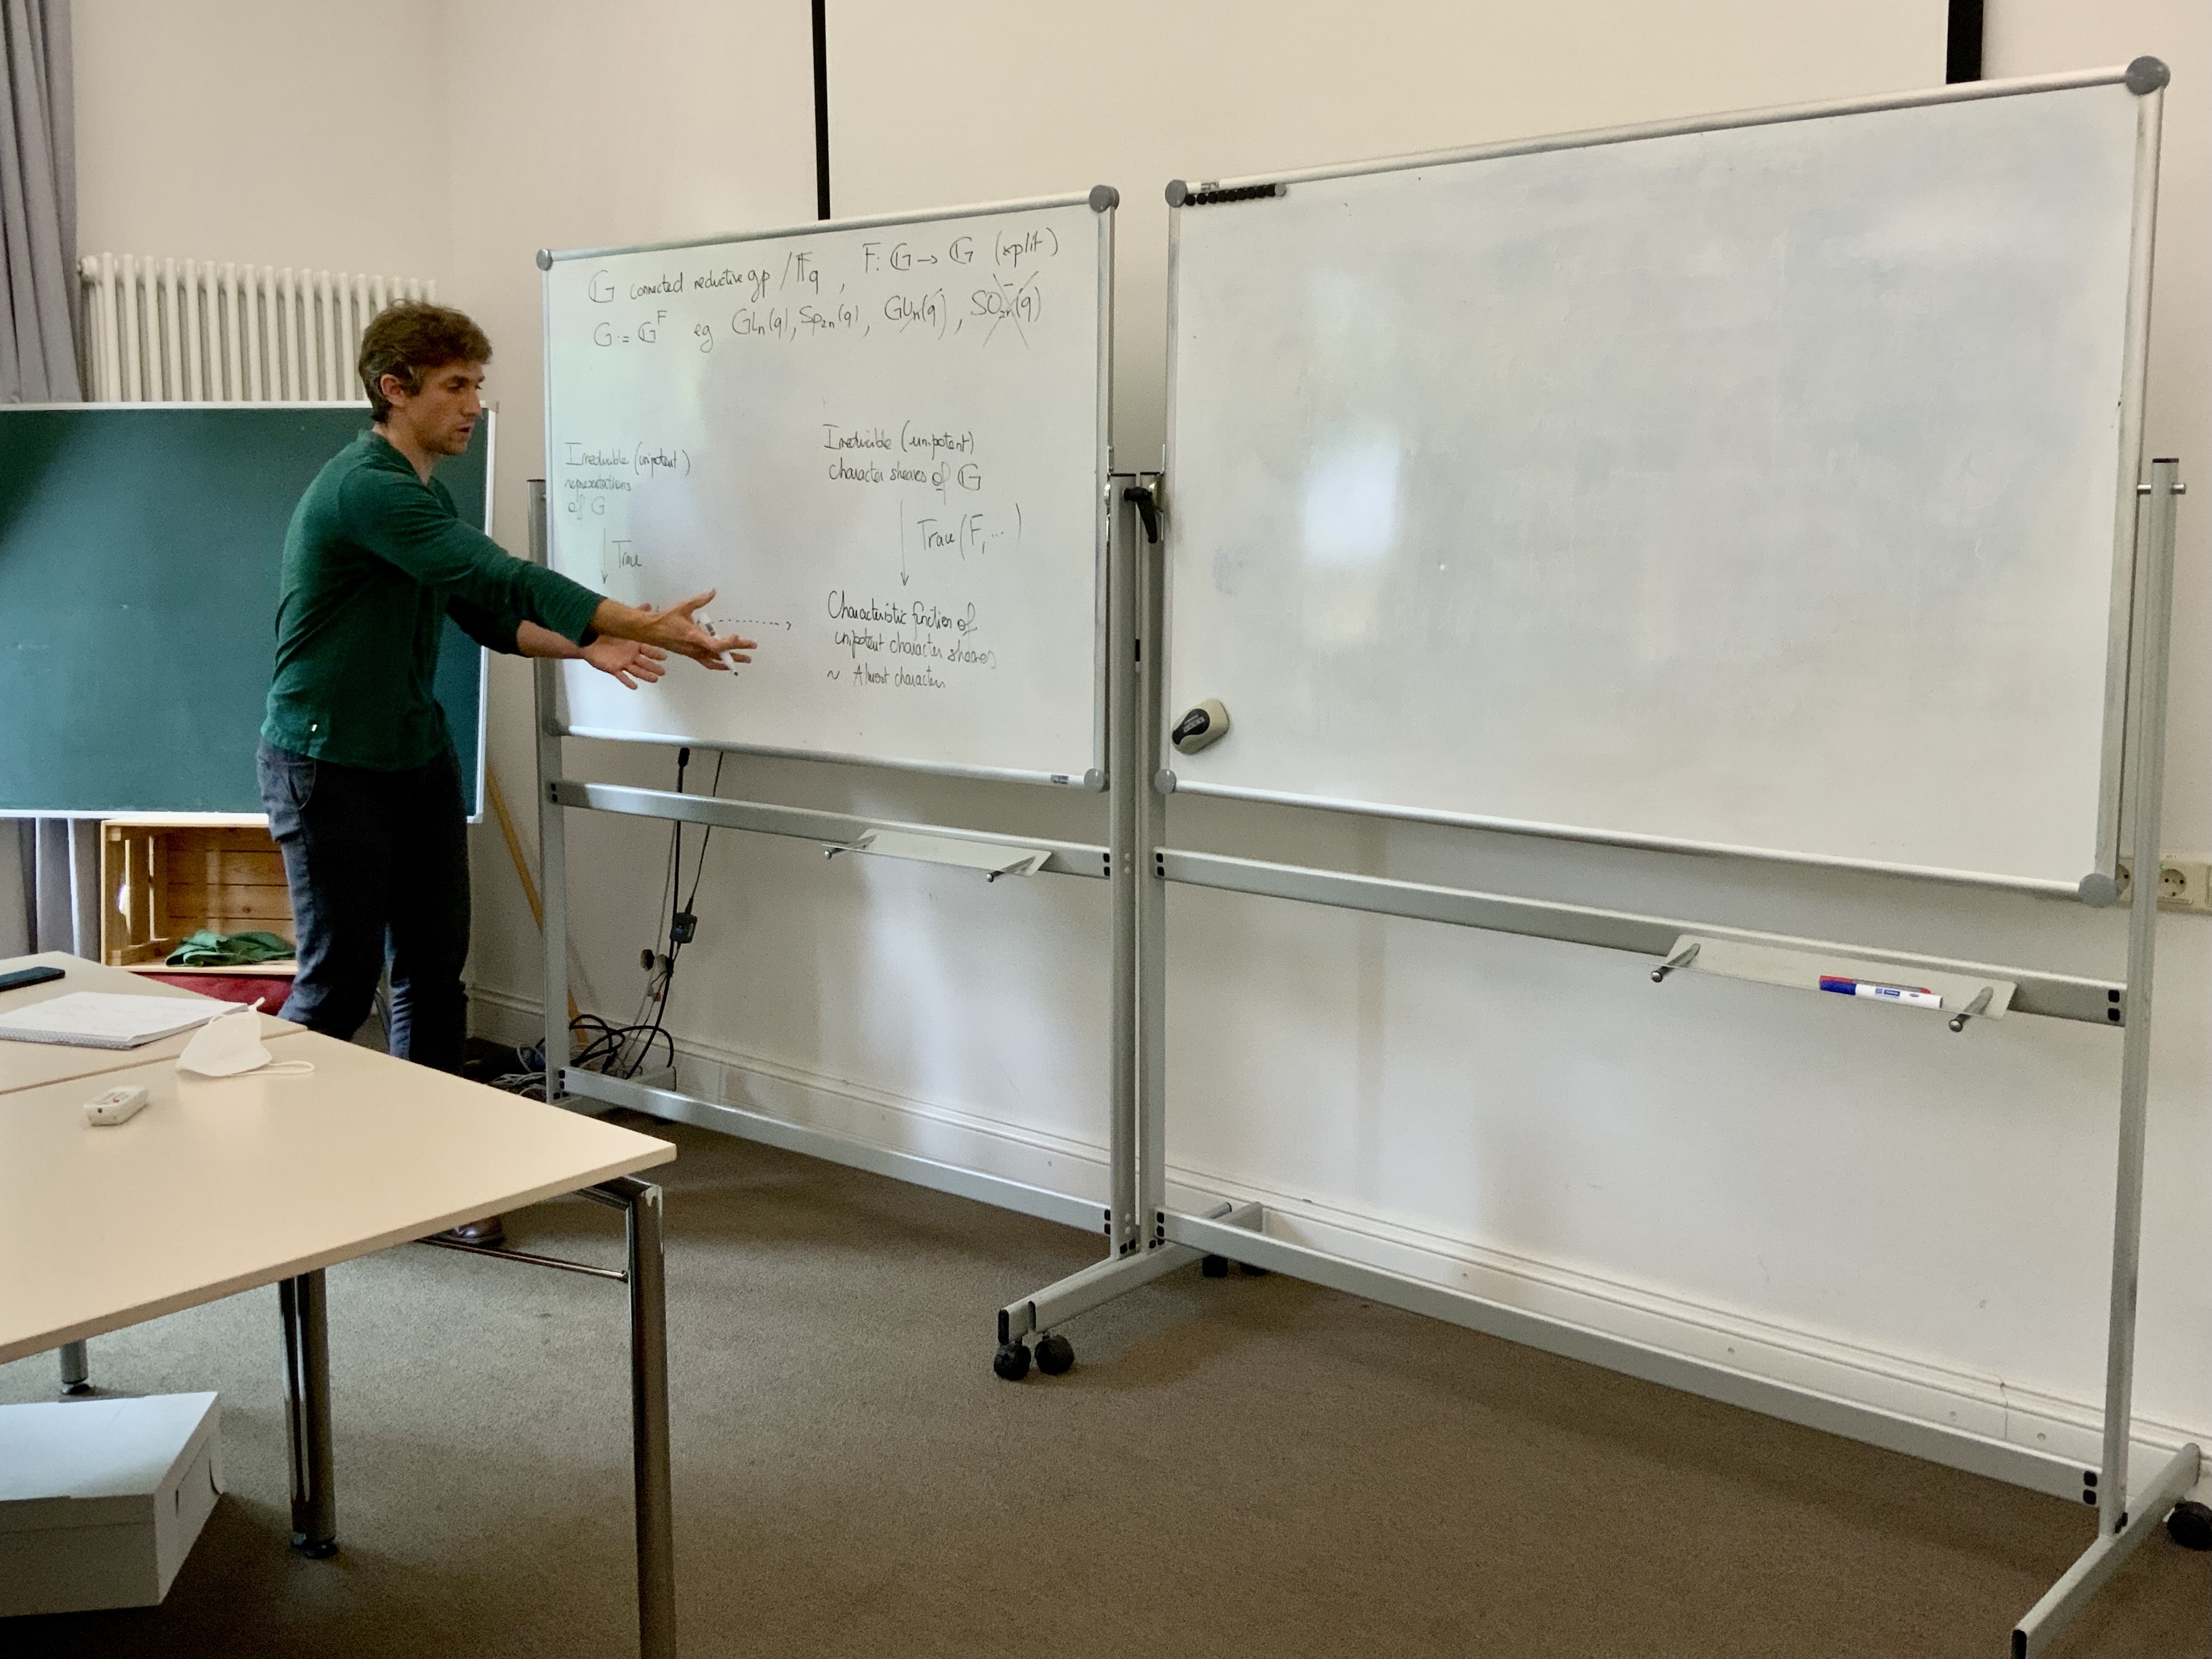 𝔾 connected reductive gp / 𝔽q , F: 𝔾 → 𝔾 (split)
G := 𝔾^F eg GLn(q), Sp2n(q), GUn(q), SO2n^-(q)
Irreducible (unipotent)
representations
of G
Trace
Irreducible (unipotent)
character sheaves of 𝔾
Trace (F, ...)
Characteristic function of
unipotent character sheaves
~ Almost characters